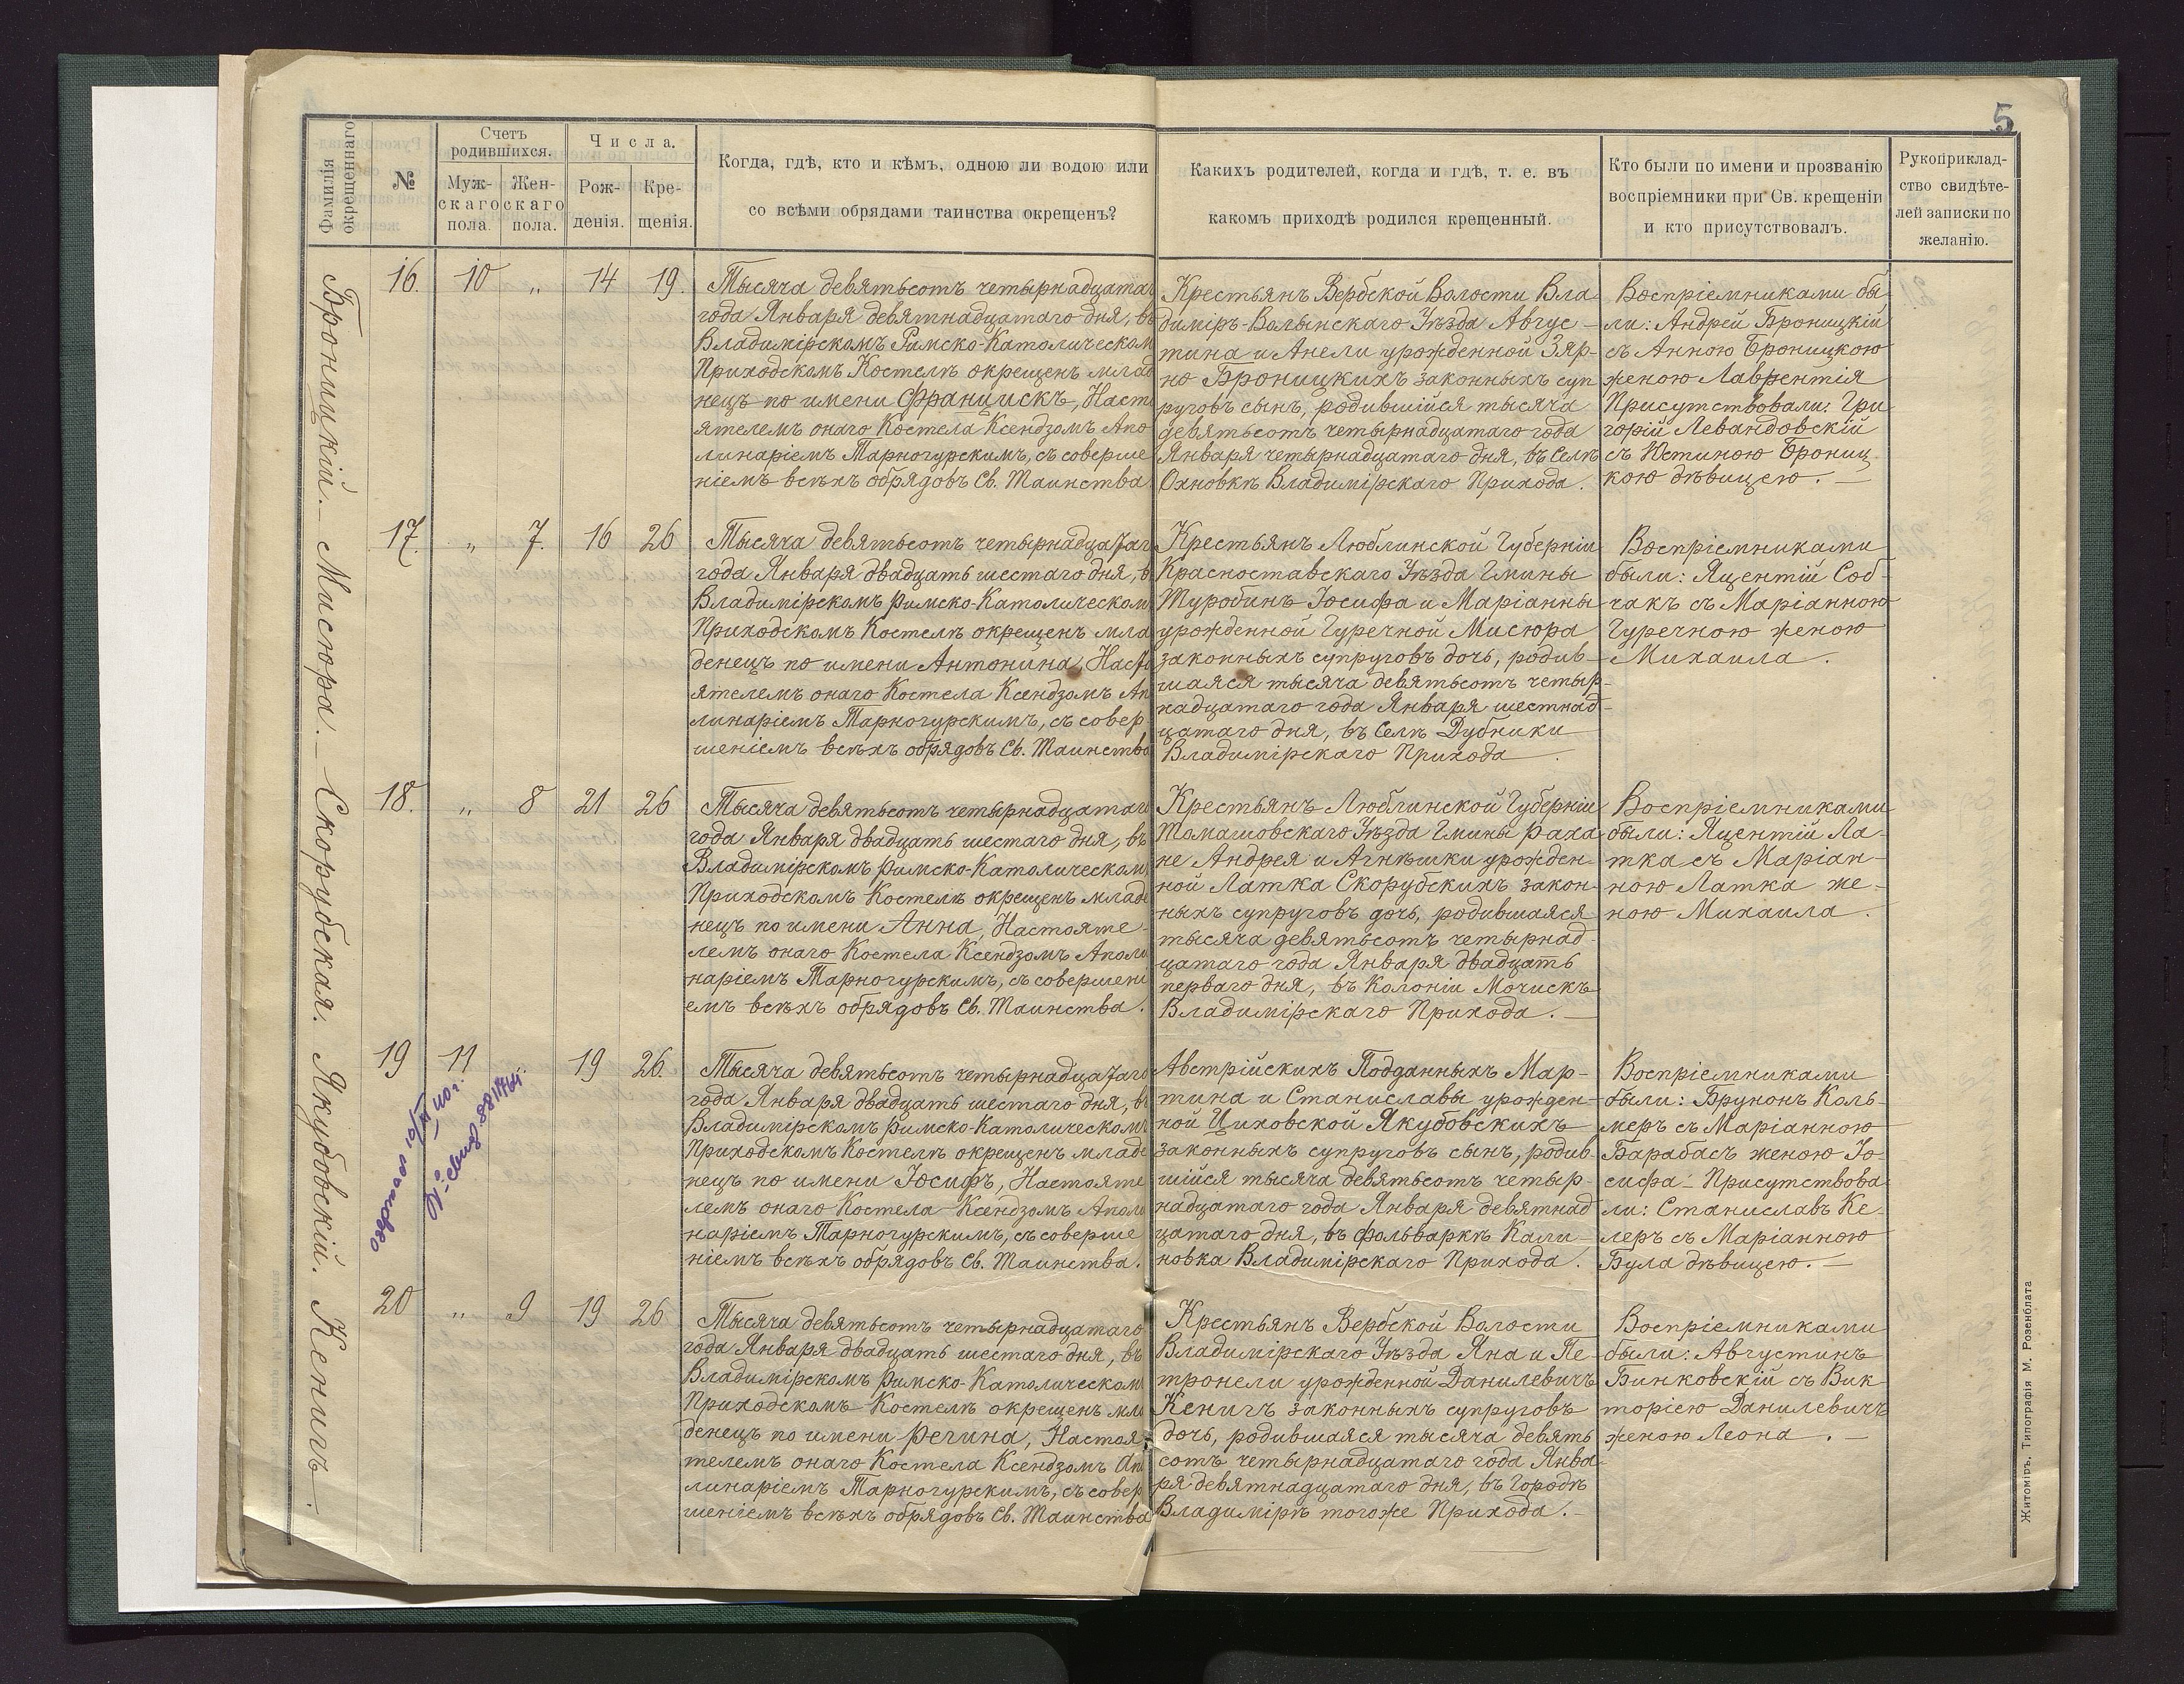 5
Фамилія окрещеннаго
№
Счетъ родившихся.
Мужскаго пола.
Женскаго пола.
Числа.
Рожденія.
Крещенія.
Когда, гдѣ, кто и кѣмъ, одною ли водою или
со всѣми обрядами таинства окрещенъ?
Какихъ родителей, когда и гдѣ, т. е. въ
какомъ приходѣ родился крещенный.
Кто были по имени и прозванію
воспріемники при Св. крещеніи
и кто присутствовалъ.
Рукоприклад-
ство свидѣте-
лей записки по
желанію.
Броницкій.
16. 10 „ 14 19.
Тысяча девятьсотъ четырнадцатаг
года Января девятнадцатаго дня, въ
Владимірскомъ Римско-Католическом
Приходскомъ Костелѣ окрещенъ млад
нецъ по имени Францискъ, Насто
ятелемъ онаго Костела Ксендзомъ Апо
линаріемъ Тарногурскимъ, съ соверше
ніемъ всѣхъ обрядовъ Св. Таинства
Крестьянъ Вербской Волости Вла
диміръ-Волынскаго Уѣзда Авгус-
тина и Анели урожденной Зяр-
но Броницкихъ законныхъ суп
руговъ сынъ, родившійся тысяча
девятьсотъ четырнадцатаго года
Января четырнадцатаго дня, въ Селѣ
Охновкѣ Владимірскаго Прихода.
Воспріемниками бы
ли: Андрей Броницкій
съ Анною Броницкою
женою Лаврентія
Присутствовали: Гри
горій Левандовскій
съ Юстиною Брониц
кою дѣвицею.
Мисюра.
17. „ 7. 16 26
Тысяча девятьсотъ четырнадцатаг
года Января двадцать шестаго дня, в
Владимірскомъ Римско-Католическом
Приходскомъ Костелѣ окрещенъ мла
денецъ по имени Антонина, Насто
ятелемъ онаго Костела Ксендзомъ Ап
линаріемъ Тарногурскимъ, съ совер
шеніемъ всѣхъ обрядовъ Св. Таинства
Крестьянъ Люблинской Губерніи
Красноставскаго Уѣзда Гмины
Туробинъ Іосифа и Маріанны
урожденной Гуречной Мисюра
законныхъ супруговъ дочь, родив-
шаяся тысяча девятьсотъ четыр-
надцатаго года Января шестнад-
цатаго дня, въ Селѣ Дубники
Владимірскаго Прихода.
Воспріемниками
были: Яцентій Соб-
чакъ съ Маріанною
Гуречною женою
Михаила.
Скорубская.
18. „ 8 21 26
Тысяча девятьсотъ четырнадцатаго
года Января двадцать шестаго дня, въ
Владимірскомъ Римско-Католическом
Приходскомъ Костелѣ окрещенъ младе
нецъ по имени Анна, Настояте-
лемъ онаго Костела Ксендзомъ Аполи
наріемъ Тарногурскимъ, съ совершені
емъ всѣхъ обрядовъ Св. Таинства.
Крестьянъ Люблинской Губерніи
Томашовскаго Уѣзда Гмины Раха
не Андрея и Агнѣшки урожден-
ной Латка Скорубскихъ закон-
ныхъ супруговъ дочь, родившаяся
тысяча девятьсотъ четырнад-
цатаго года Января двадцать
перваго дня, въ Колоніи Мочискъ
Владимірскаго Прихода.
Воспріемниками
были: Яцентій Ла-
тка съ Маріан-
ною Латка же-
ною Михаила.
Якубовскій.
19 11 „ 19 26.
Тысяча девятьсотъ четырнадцатаго
года Января двадцать шестаго дня, въ
Владимірскомъ Римско-Католическомъ
Приходскомъ Костелѣ окрещенъ младе
нецъ по имени Іосифъ, Настояте
лемъ онаго Костела Ксендзомъ Аполи
наріемъ Тарногурскимъ, съ соверше
ніемъ всѣхъ обрядовъ Св. Таинства.
Австрійскихъ Подданныхъ Мар-
тина и Станиславы урожден-
ной Циховской Якубовскихъ
законныхъ супруговъ сынъ, родив-
шійся тысяча девятьсотъ четыр-
надцатаго года Января девятнад
цатаго дня, въ фольваркѣ Кали-
новка Владимірскаго Прихода.
Воспріемниками
были: Брунонъ Коль-
меръ съ Маріанною
Барабасъ женою Іо-
сифа - Присутствова
ли: Станиславъ Ке-
леръ съ Маріанною
Була дѣвицею.
Кеничъ.
20 „ 9 19 26
Тысяча девятьсотъ четырнадцатаго
года Января двадцать шестаго дня, въ
Владимірскомъ Римско-Католическом
Приходскомъ Костелѣ окрещенъ мла
денецъ по имени Регина, Настоя-
телемъ онаго Костела Ксендзомъ Апо
линаріемъ Тарногурскимъ, съ совер
шеніемъ всѣхъ обрядовъ Св. Таинства
Крестьянъ Вербской Волости
Владимірскаго Уѣзда Яна и Пе-
тронели урожденной Данилевичъ
Кеничъ законныхъ супруговъ
дочь, родившаяся тысяча девять
сотъ четырнадцатаго года Янва-
ря девятнадцатаго дня, въ Городѣ
Владимірѣ тогоже Прихода.
Воспріемниками
были: Августинъ
Бинковскій съ Вик
торіею Данилевичъ
женою Леона.
Житоміръ, Типографія М. Розенблата